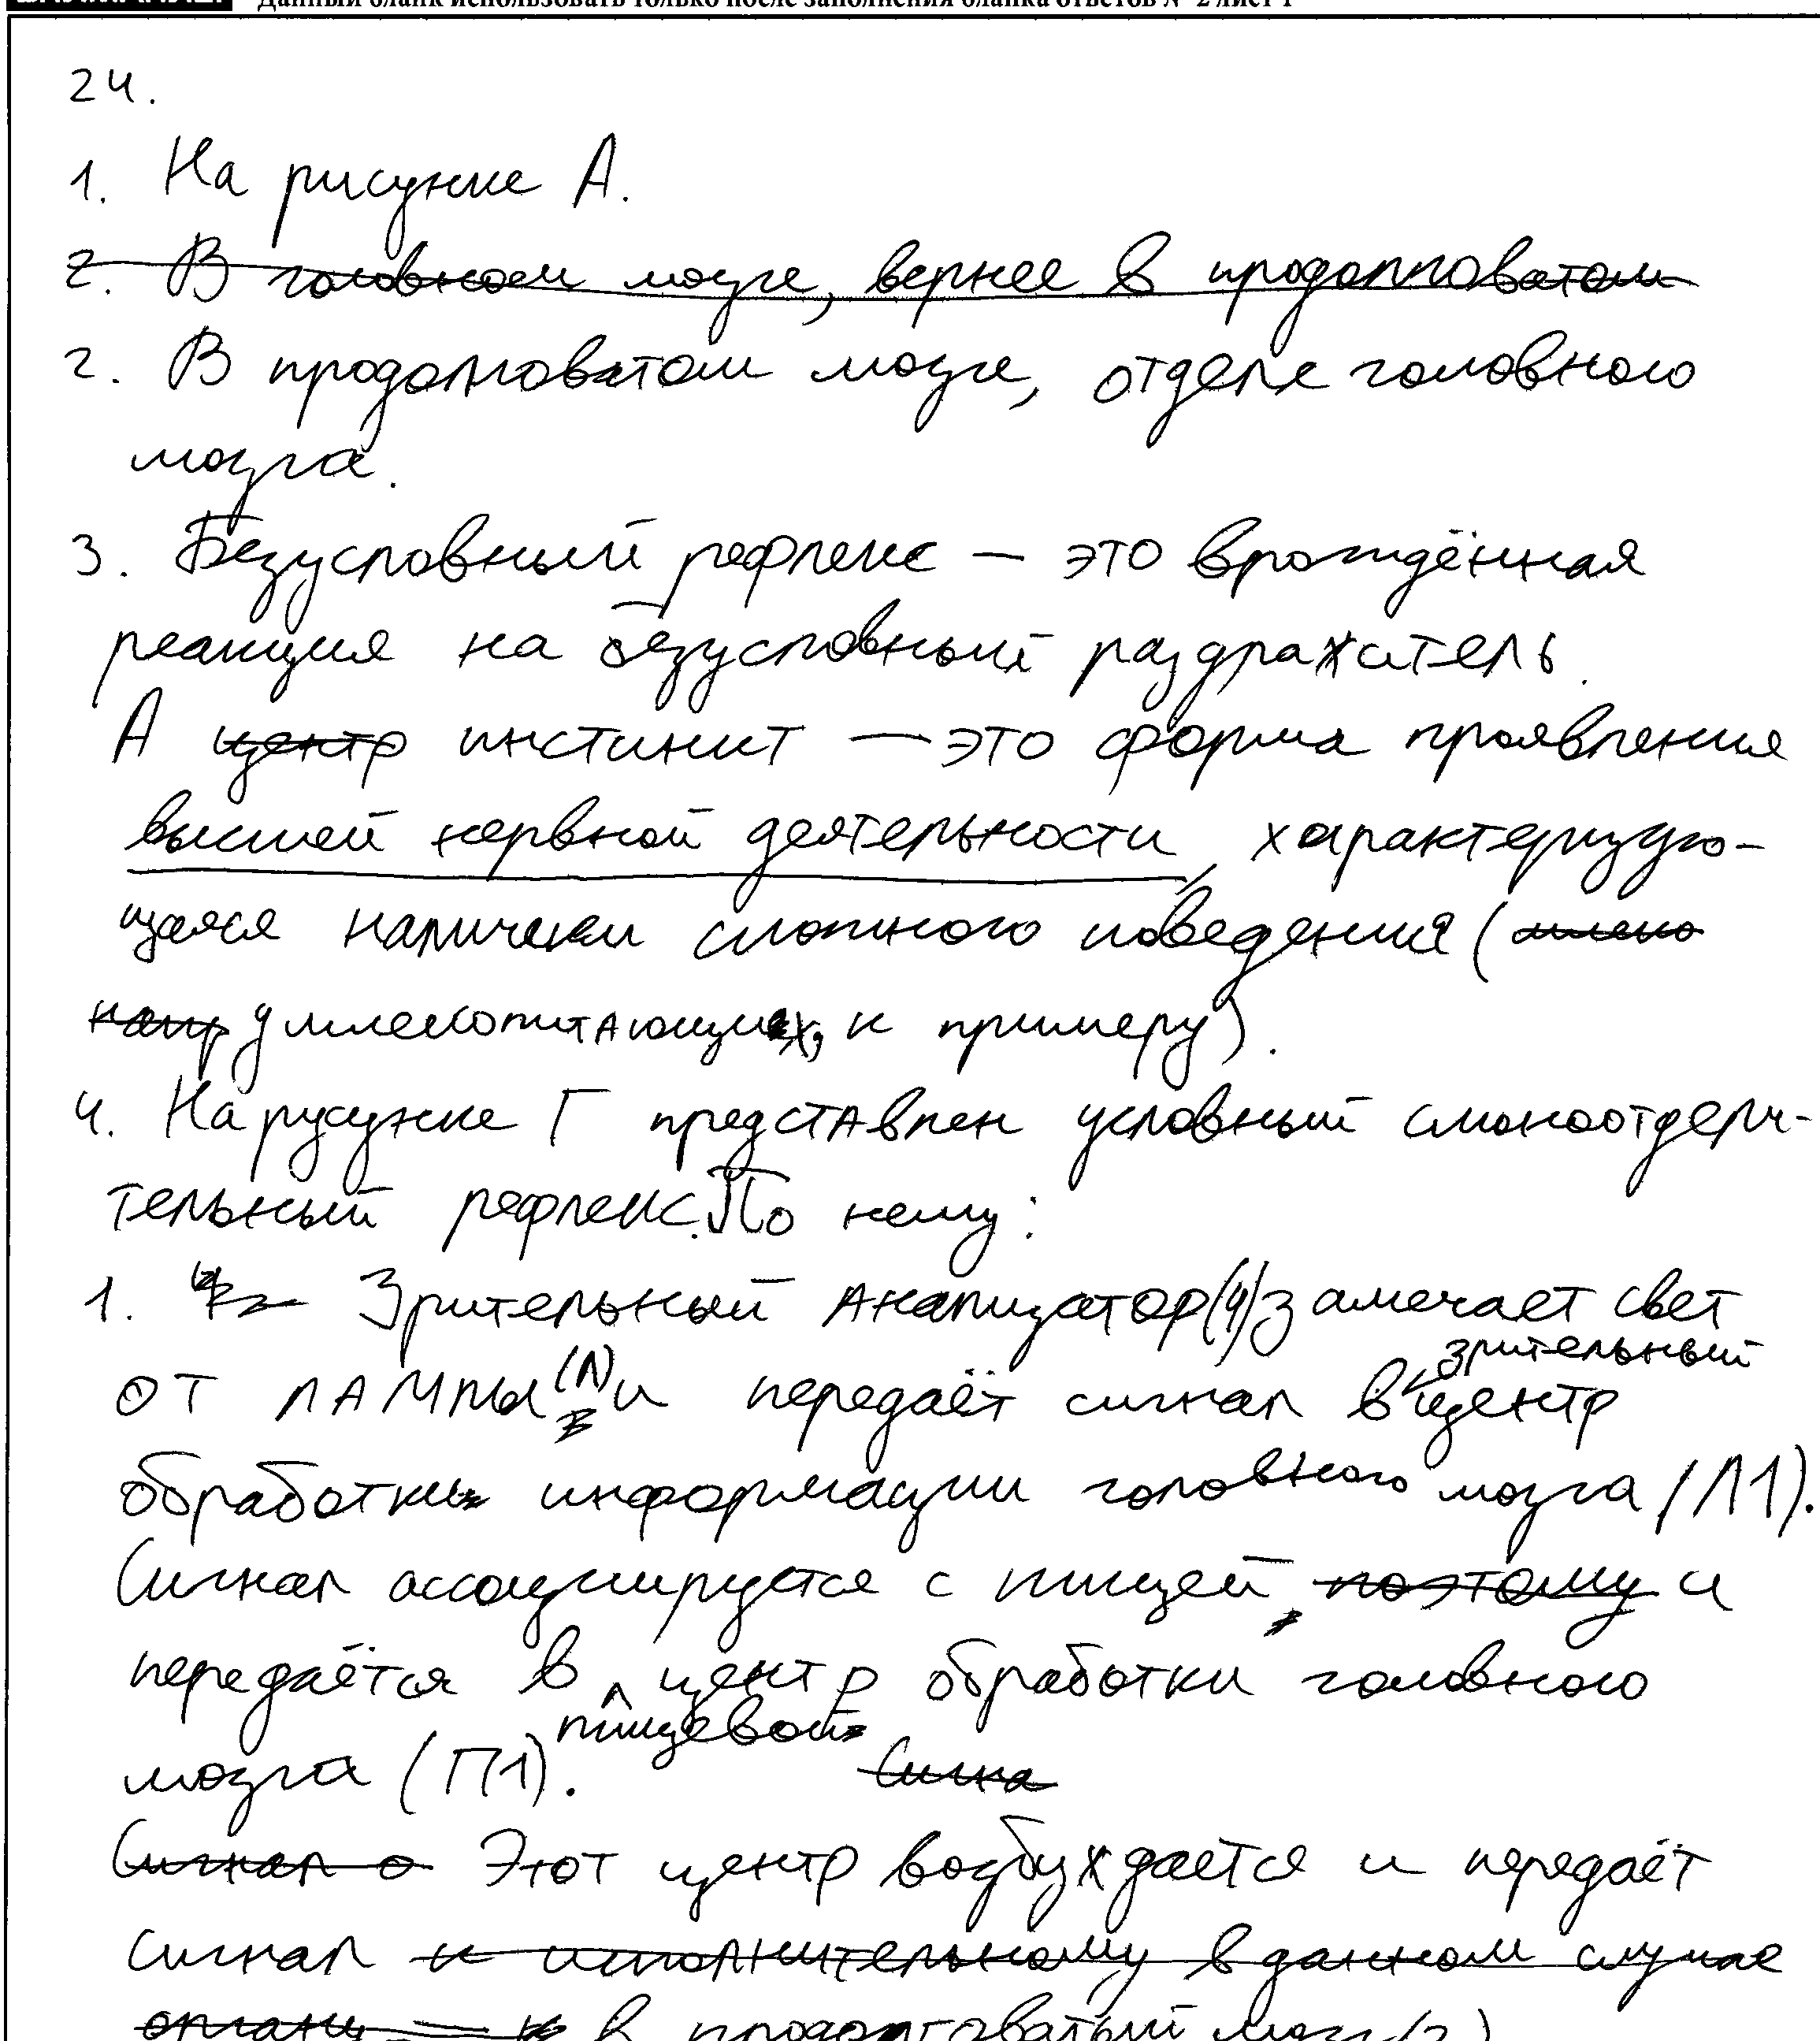 Данный бланк использовать только после заполнения бланка ответов № 2 лист 1
24.
1. На рисунке А.
2. В головном мозге, вернее в продолговатом
2. В продолговатом мозге, отделе головного
мозга.
3. Безусловный рефлекс — это врождённая
реакция на безусловный раздражитель.
А центр инстинкт — это форма проявления
высшей нервной деятельности, характеризую-
щаяся наличием сложного поведения (млеко
напр у млекопитающих, к примеру).
4. На русунке Г представлен условный слюноотдели-
тельный рефлекс. По нему:
1. Зрительный анализатор (4) замечает свет
зрительный
от лампы (Л) и передаёт сигнал в центр
обработки информации головного мозга (Л1).
Сигнал ассоциируется с пищей, поэтому и
передаётся в центр обработки головного
пищевой
мозга (П1). Сигна
Сигнал о Этот центр возбуждается и передаёт
сигнал к исполнительному в данном случае
органу — к в продолговатый мозг (2)